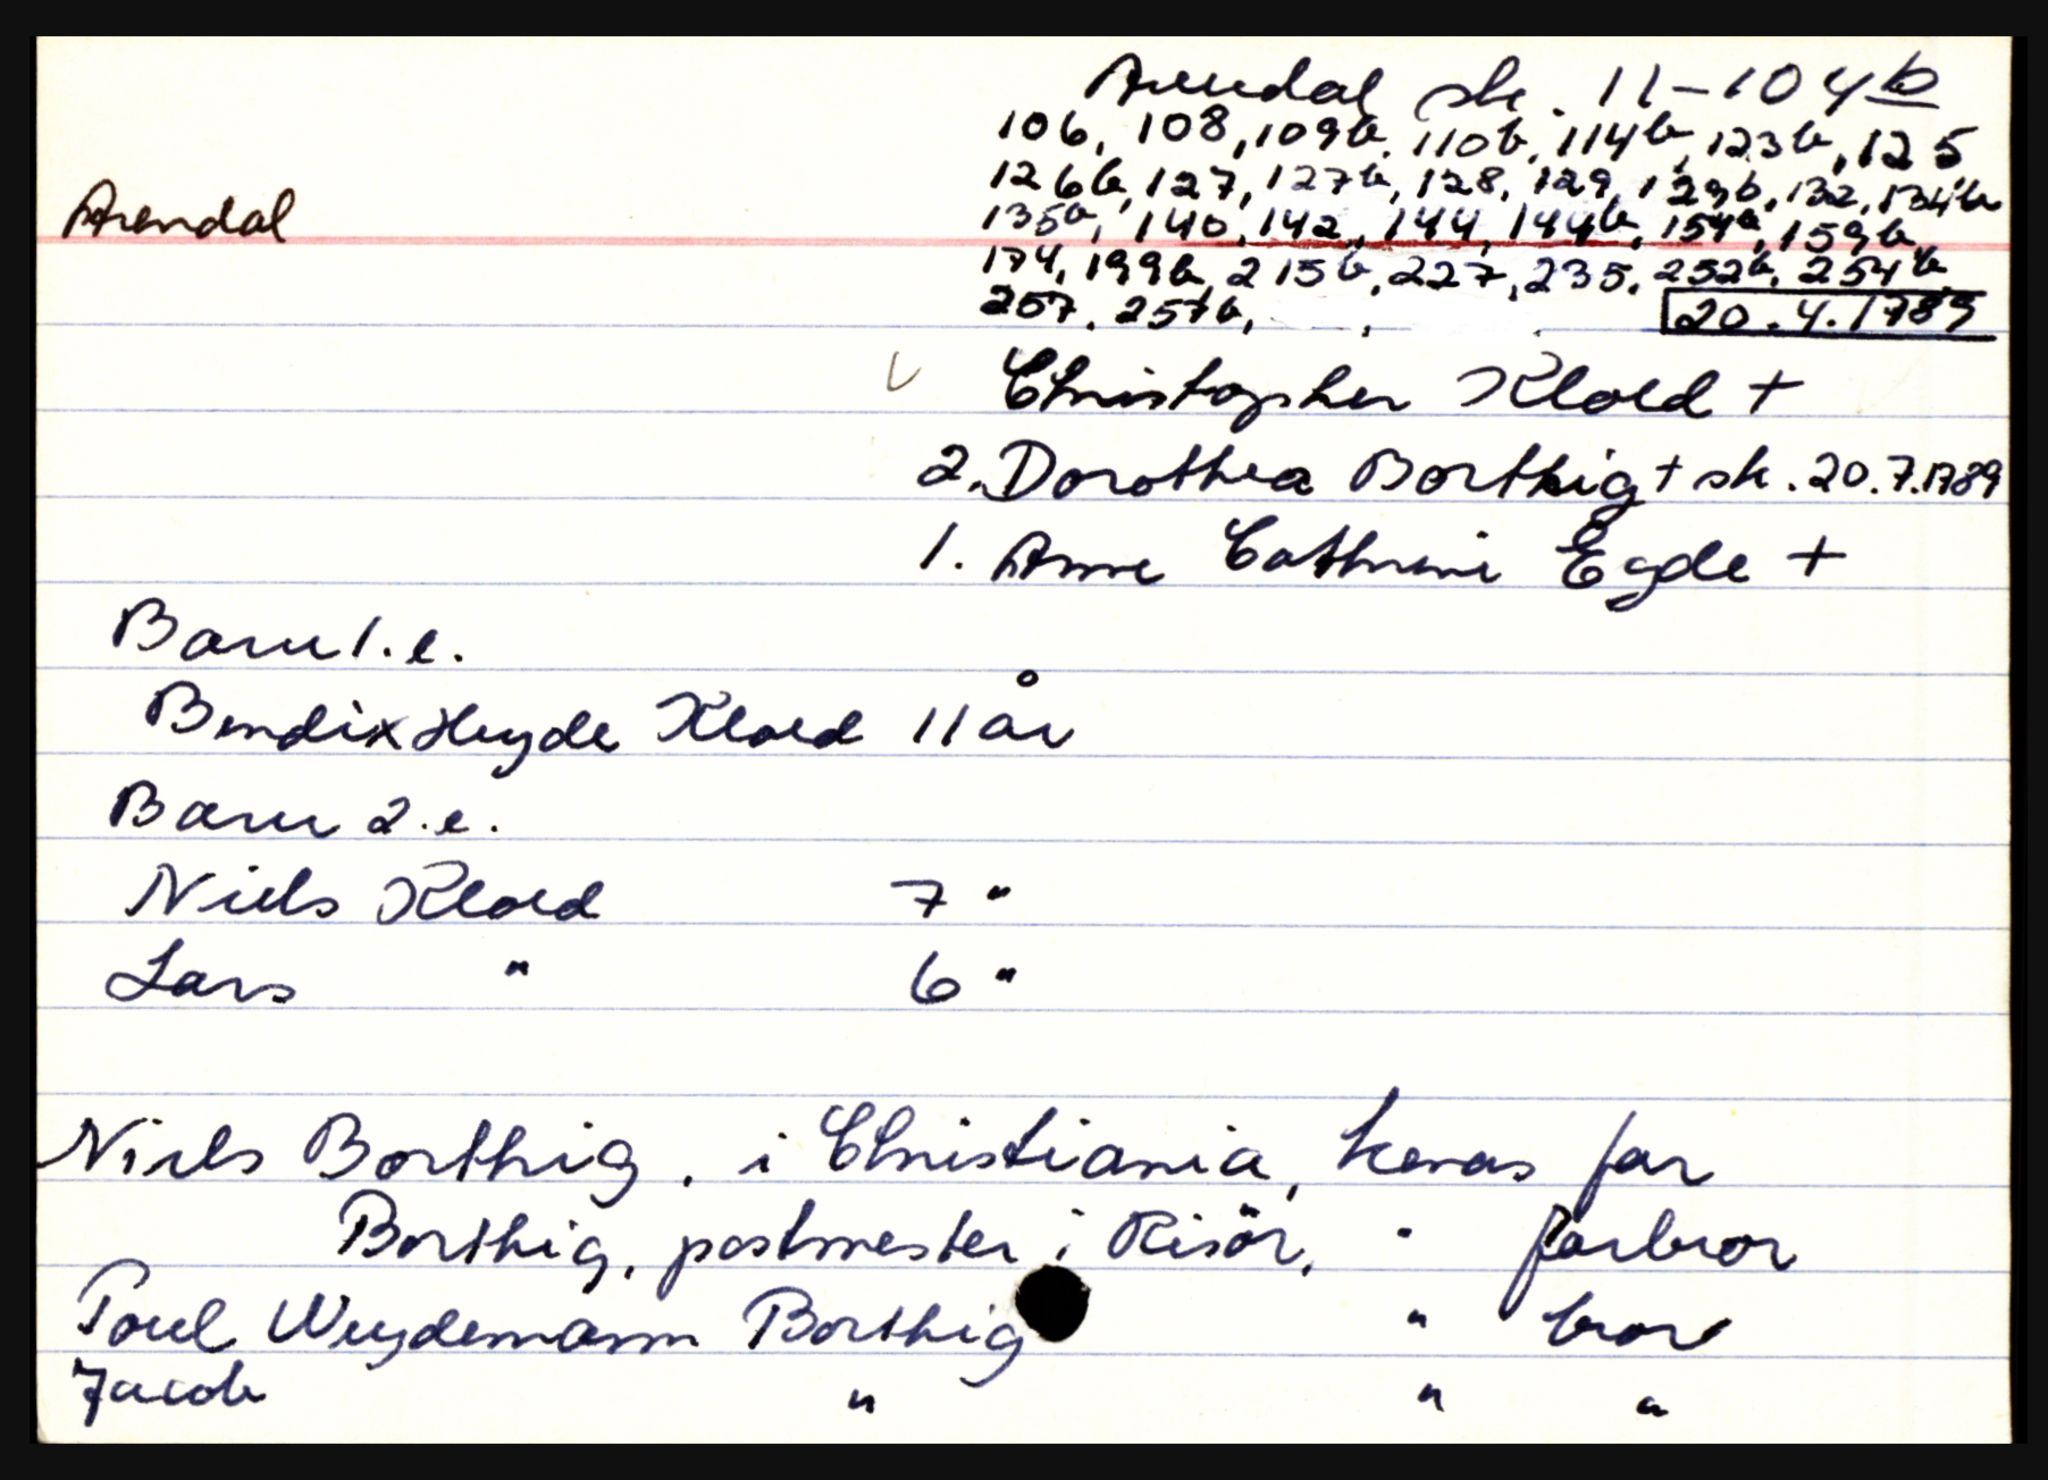 Arendal sk. 11-104b
106, 108, 109b, 110b, 114b, 123b, 125
126b, 127, 127b, 128, 129, 129b, 132, 134b
Arendal
135b, 140, 142, 144, 144b, 154b, 159b,
174, 199b, 215b, 227, 235, 252b, 254b
257, 257b,
20.4.1789
Christopher Kloed +
2. Dorothea Borthig + sk. 20.7.1789
1. Anne Cathrine Egde +
Barn 1. e.
Bendix Heyde Kloed 11 år
Barn 2. e.
Niels Kloed 7 "
Lars " 6 "
Niels Borthig, i Christiania, kenas far
Borthig, postmester i Risör, " farbror
Poul Weydemann Borthig " bror
Jacob " " "